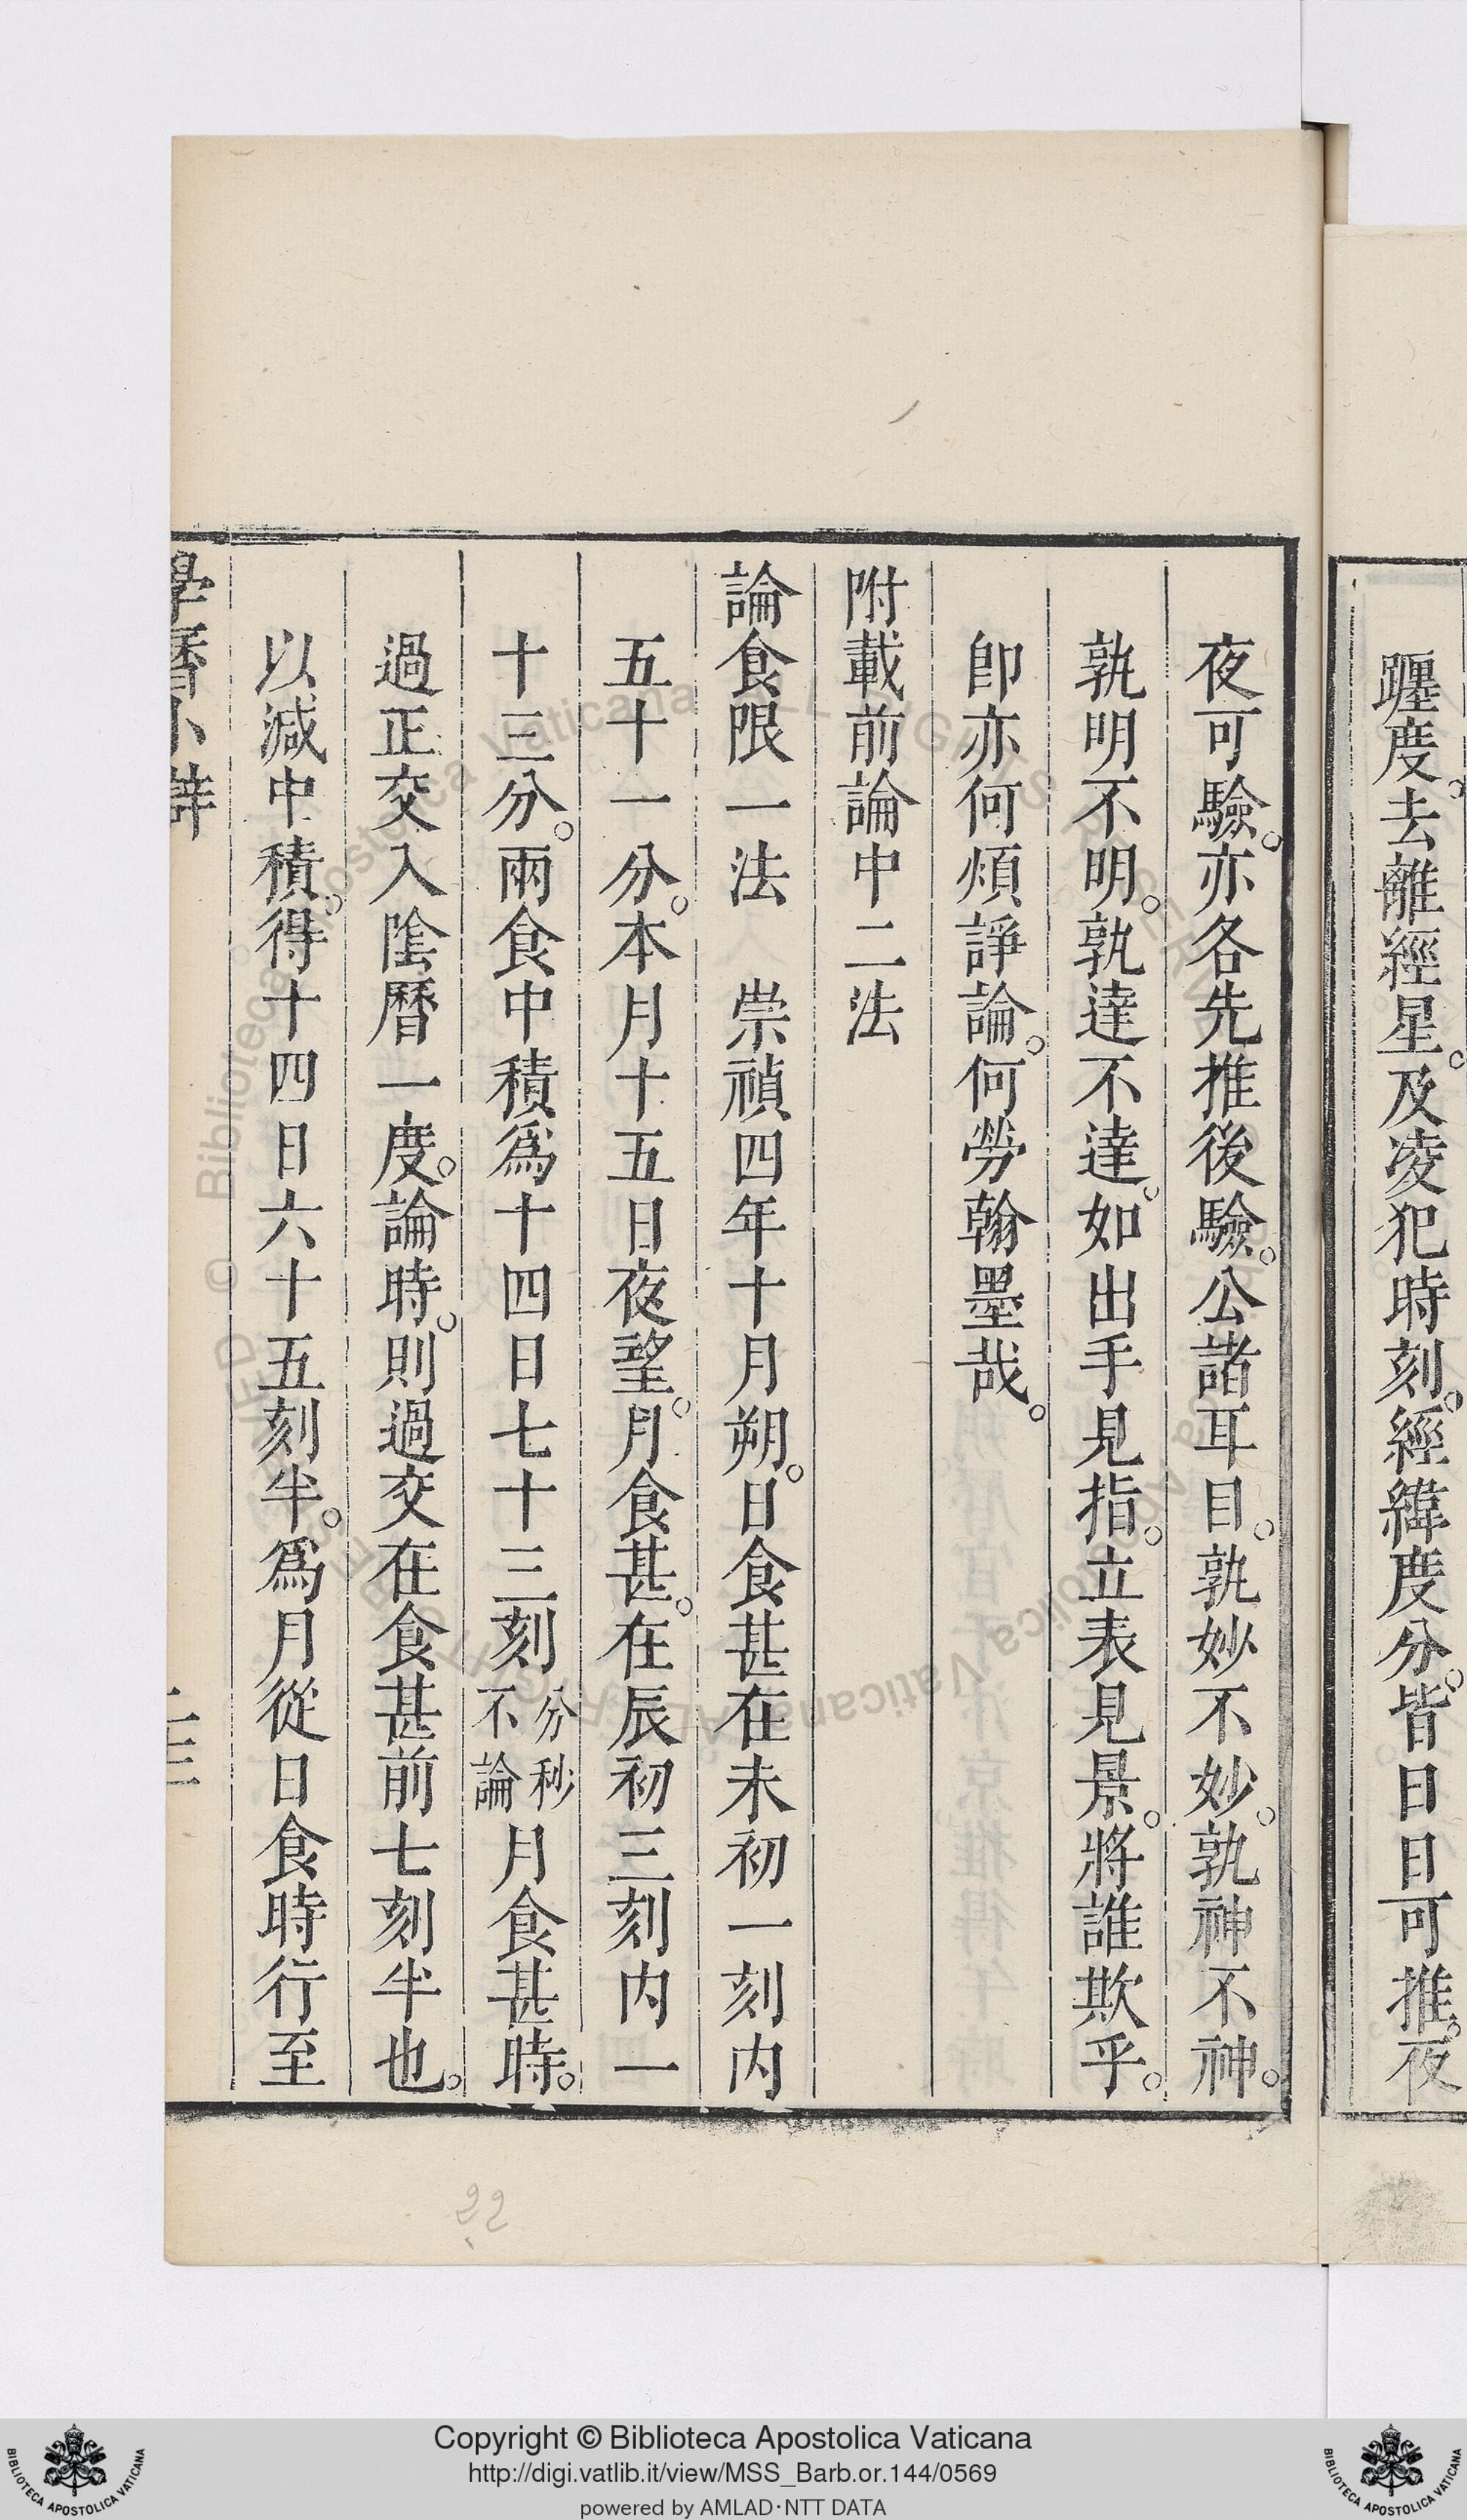 躔度。去離經星。及凌犯時刻。經緯度分。皆日日可推。夜
夜可驗。亦各先推後驗。公諸耳目。孰妙不妙。孰神不神。
孰明不明。孰達不達。如出手見指。立表見景。將誰欺乎。
卽亦何煩諍論。何勞翰墨哉。
附載前論中二法
論食限一法　崇禎四年十月朔。日食甚在未初一刻內
五十一分。本月十五日夜望。月食甚。在辰初三刻內一
十三分。兩食中積爲十四日七十三刻分秒不論月食甚時。
過正交入陰曆一度。論時。則過交在食甚前七刻半也。
以減中積。得十四日六十五刻半。爲月從日食時行至
學曆小辯
二三
22
Copyright © Biblioteca Apostolica Vaticana
http://digi.vatlib.it/view/MSS_Barb.or.144/0569
powered by AMLAD·NTT DATA
BIBLIOTECA APOSTOLICA VATICANA
BIBLIOTECA APOSTOLICA VATICANA